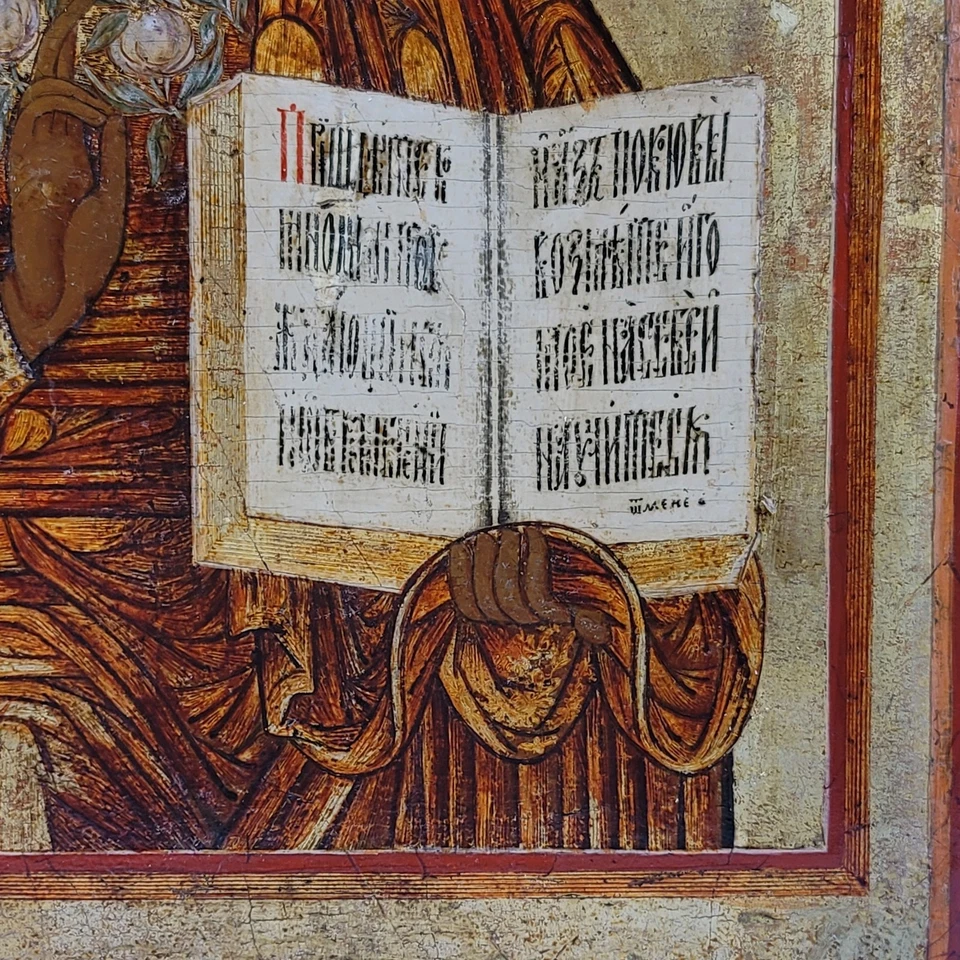 Прїидите к
мнѣ вси трꙋ
ждающїисѧ
и обремененнїи
и азъ покою вы
возмѣте иго
мое на себе и
научитесѧ
ѿ мене